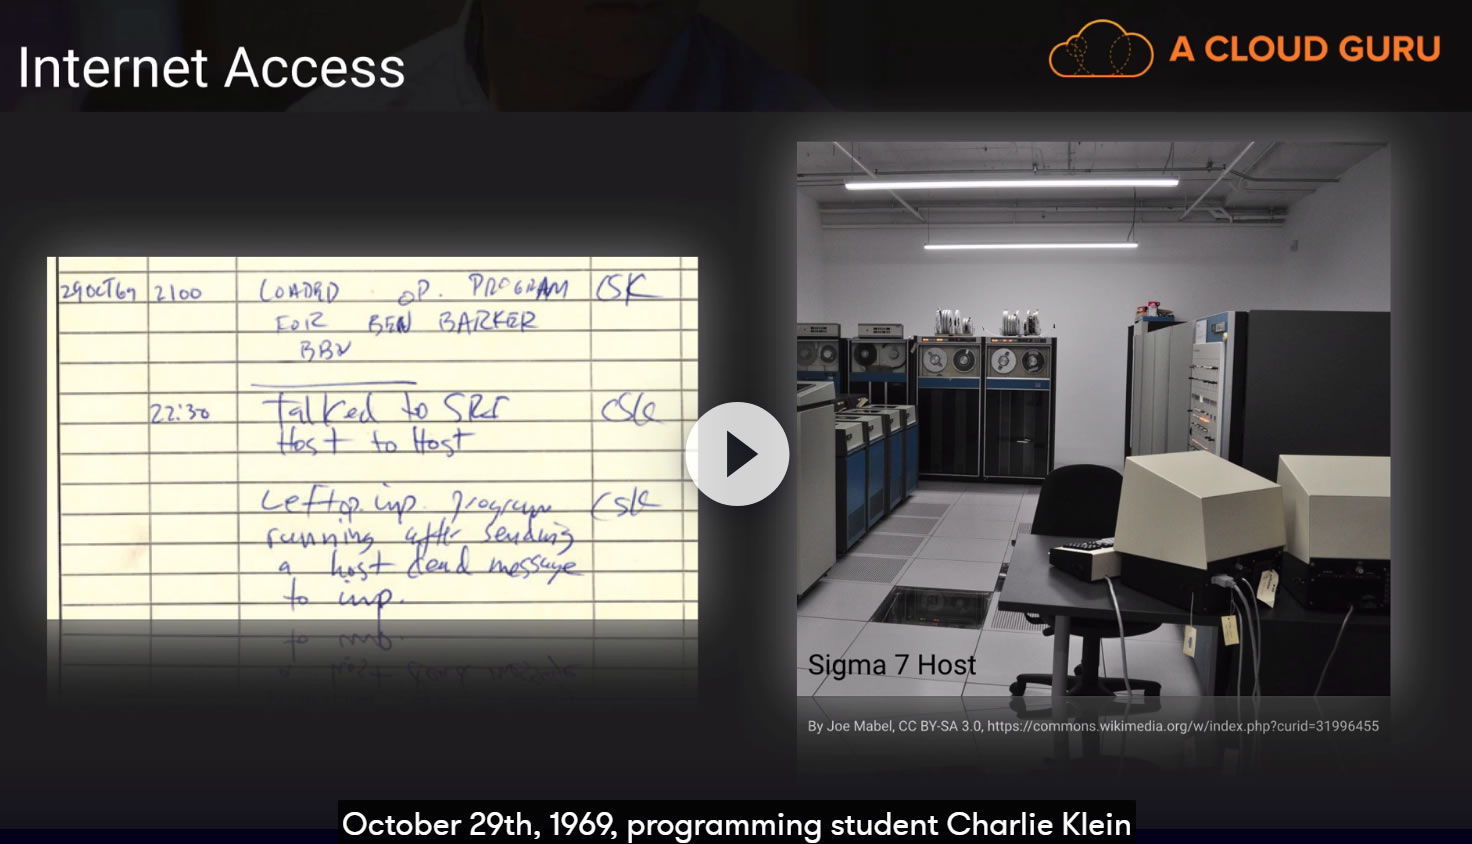 Internet Access
A CLOUD GURU
29OCT69 2100 LOADED OP. PROGRAM CSK
FOR BEN BARKER
BBN
22:30 Talked to SRI CSK
Host to Host
Left op. imp. program CSK
running after sending
a host dead message
to imp.
Sigma 7 Host
By Joe Mabel, CC BY-SA 3.0, https://commons.wikimedia.org/w/index.php?curid=31996455
October 29th, 1969, programming student Charlie Klein